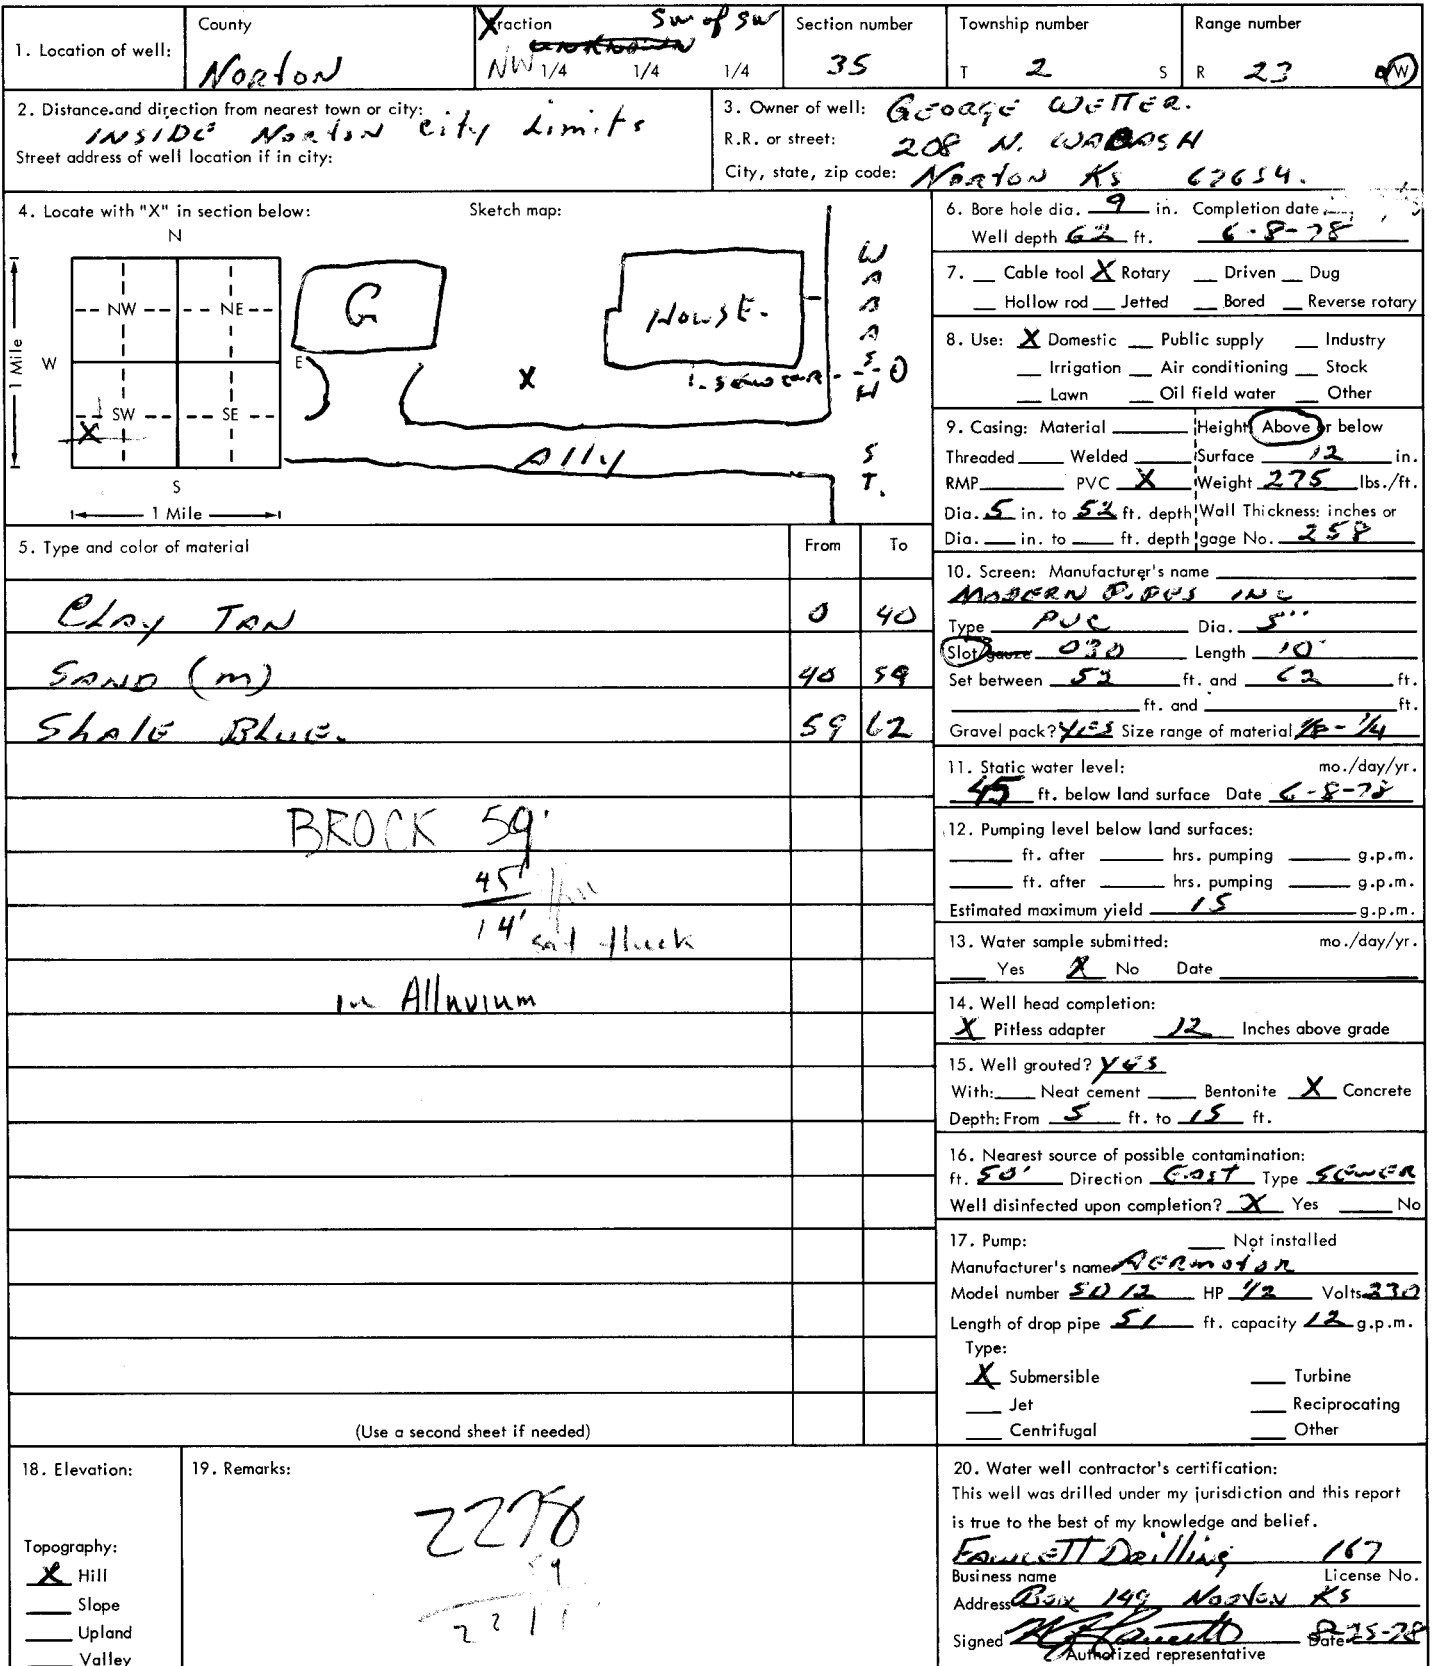 1. Location of well:
County
Norton
Fraction SW of SW
NW 1/4 1/4 1/4
Section number
35
Township number
T 2 S
Range number
R 23 W
2. Distance and direction from nearest town or city:
INSIDE Norton City Limits
Street address of well location if in city:
3. Owner of well: GEORGE WETTER.
R.R. or street: 208 N. WABASH
City, state, zip code: Norton Ks 67654.
4. Locate with "X" in section below:
Sketch map:
N
NW NE
W E
SW SE
X
S
1 Mile
1 Mile
G
HOUSE.
X
SEWER
Ally
WABASH ST.
5. Type and color of material From To
Clay TAN 0 40
SAND (m) 40 59
Shale Blue. 59 62
BROCK 59'
45'
14' sat thick
in Alluvium
(Use a second sheet if needed)
6. Bore hole dia. 9 in. Completion date
Well depth 62 ft. 6-8-78
7. Cable tool X Rotary Driven Dug
Hollow rod Jetted Bored Reverse rotary
8. Use: X Domestic Public supply Industry
Irrigation Air conditioning Stock
Lawn Oil field water Other
9. Casing: Material Height Above or below
Threaded Welded Surface 12 in.
RMP PVC X Weight 275 lbs./ft.
Dia. 5 in. to 52 ft. depth Wall Thickness: inches or
Dia. in. to ft. depth gage No. 258
10. Screen: Manufacturer's name
MODERN PIPES INC
Type PVC Dia. 5"
Slot/gauze 030 Length 10'
Set between 52 ft. and 62 ft.
ft. and ft.
Gravel pack? YES Size range of material 1/8 - 1/4
11. Static water level: mo./day/yr.
45 ft. below land surface Date 6-8-78
12. Pumping level below land surfaces:
ft. after hrs. pumping g.p.m.
ft. after hrs. pumping g.p.m.
Estimated maximum yield 15 g.p.m.
13. Water sample submitted: mo./day/yr.
Yes X No Date
14. Well head completion:
X Pitless adapter 12 Inches above grade
15. Well grouted? YES
With: Neat cement Bentonite X Concrete
Depth: From 5 ft. to 15 ft.
16. Nearest source of possible contamination:
ft. 50' Direction EAST Type SEWER
Well disinfected upon completion? X Yes No
17. Pump: Not installed
Manufacturer's name AERmotor
Model number SD12 HP 1/2 Volts 230
Length of drop pipe 51 ft. capacity 12 g.p.m.
Type:
X Submersible Turbine
Jet Reciprocating
Centrifugal Other
18. Elevation:
Topography:
X Hill
Slope
Upland
Valley
19. Remarks:
20. Water well contractor's certification:
This well was drilled under my jurisdiction and this report
is true to the best of my knowledge and belief.
Fawcett Drilling 167
Business name License No.
Address Box 149 Norton Ks
Signed Date 8-25-78
Authorized representative